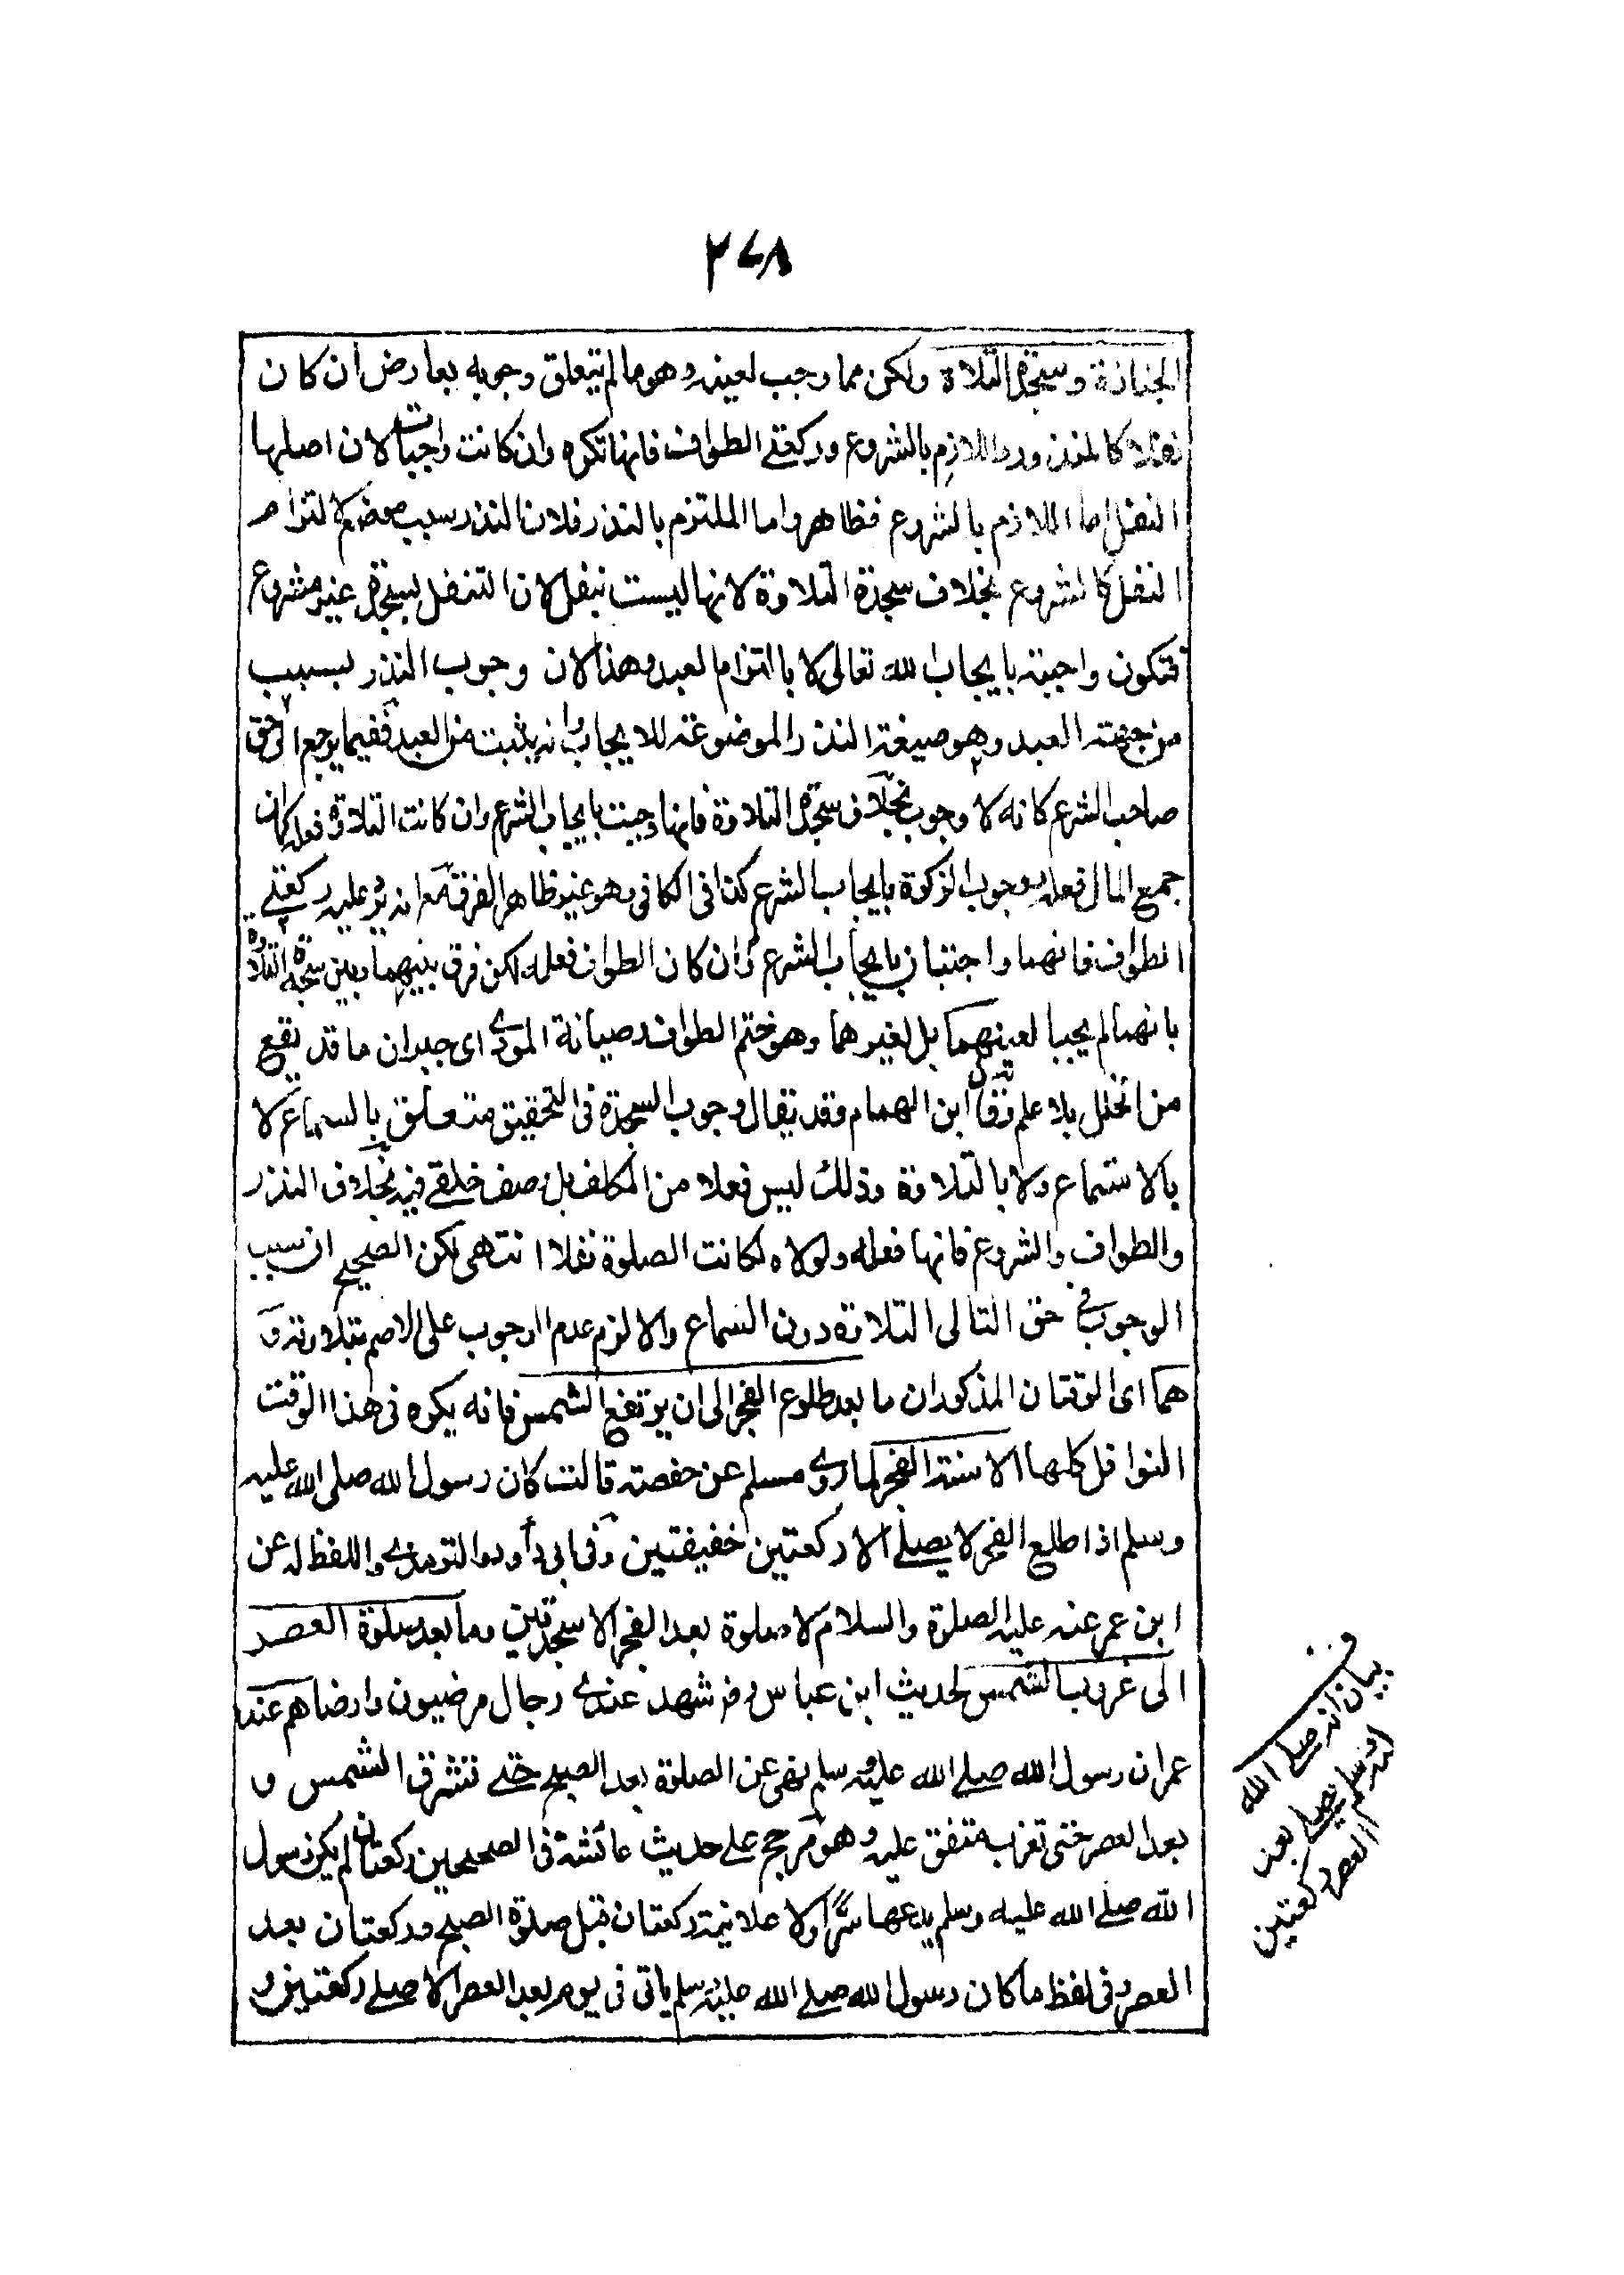 ٢٧٨
الجنازة وسجدة التلاوة ولكن مما وجب لعينه وهو ما لم يتعلق وجوبه بعارض ان كان
نفلا كالمنذور واللازم بالشروع وركعتے الطواف فانها تكره وان كانت واجبات لان اصلها
النفل اما اللازم بالشروع فظاهر واما الملتزم بالنذر فلان النذر سبب موضع لالتزام
النفل كالشروع بخلاف سجدة التلاوة لانها ليست بنفل لان التنفل بسجدة غير مشروع
فتكون واجبة بايجاب الله تعالى لا بالتزام العبد وهذا لان وجوب النذر بسبب
من جهته العبد وهو صيغة النذر الموضوعة للايجاب وانه يثبت من العبد ففيما يرجع الى حق
صاحب الشرع كانه لا وجوب بخلاف سجدة التلاوة فانها وجبت بايجاب الشرع وان كانت التلاوة فعله كما ان
جمع المال فعله ووجوب الزكوة بايجاب الشرع كذا فى الكافى وهو غير ظاهر الفرقة مع انه يرد عليه ركعتے
الطواف فانهما واجبتان بايجاب الشرع وان كان الطواف فعله لكن فرق بينهما وبين سجدة التلاوة
بانهما لم يجبا لعينهما بل لغيرهما وهو ختم الطواف وصيانة المودے اى جبران ما قد يقع
من الخلل بلا علم وقال ابن الهمام وقد يقال وجوب السجدة فى التحقيق متعلق بالسماع لا
بالاستماع ولا بالتلاوة وذلك ليس فعلا من المكلف بل وصف خلقے فيه بخلاف النذر
والطواف والشروع فانها فعله ولولاه لكانت الصلوة نفلا انتهى لكن الصحيح ان سبب
الوجوب فى حق التالى التلاوة دون السماع والا لزم عدم الوجوب على الاصم بتلاوته و
هما اى الوقتان المذكوران ما بعد طلوع الفجر الى ان يرتفع الشمس فانه يكره فى هذا الوقت
النوافل كلها الا سنة الفجر لما روے مسلم عن حفصة قالت كان رسول الله صلى الله عليه
وسلم اذا طلع الفجر لا يصلے الا ركعتين خفيفتين وفى ابى داود والترمذے واللفظ له عن
ابن عمر عنه عليه الصلوة والسلام لا صلوة بعد الفجر الا سجدتين وما بعد صلوة العصر
الى غروب الشمس لحديث ابن عباس شهد عندے رجال مرضيون وارضاهم عندى
عمر ان رسول الله صلے الله عليه وسلم نهى عن الصلوة بعد الصبح حتے تشرق الشمس و
بعد العصر حتى تغرب متفق عليه وهو مرجح علے حديث عائشة فى الصحيحين ركعتان لم يكن رسول
الله صلے الله عليه وسلم يدعهما سرًّا ولا علانية ركعتان قبل صلوة الصبح وركعتان بعد
العصر وفى لفظ ما كان رسول الله صلے الله عليه وسلم ياتى فى يوم بعد العصر الا صلے ركعتين و
ف
بيان انه صلے الله
عليه وسلم يصلے بعد
العصر ركعتين